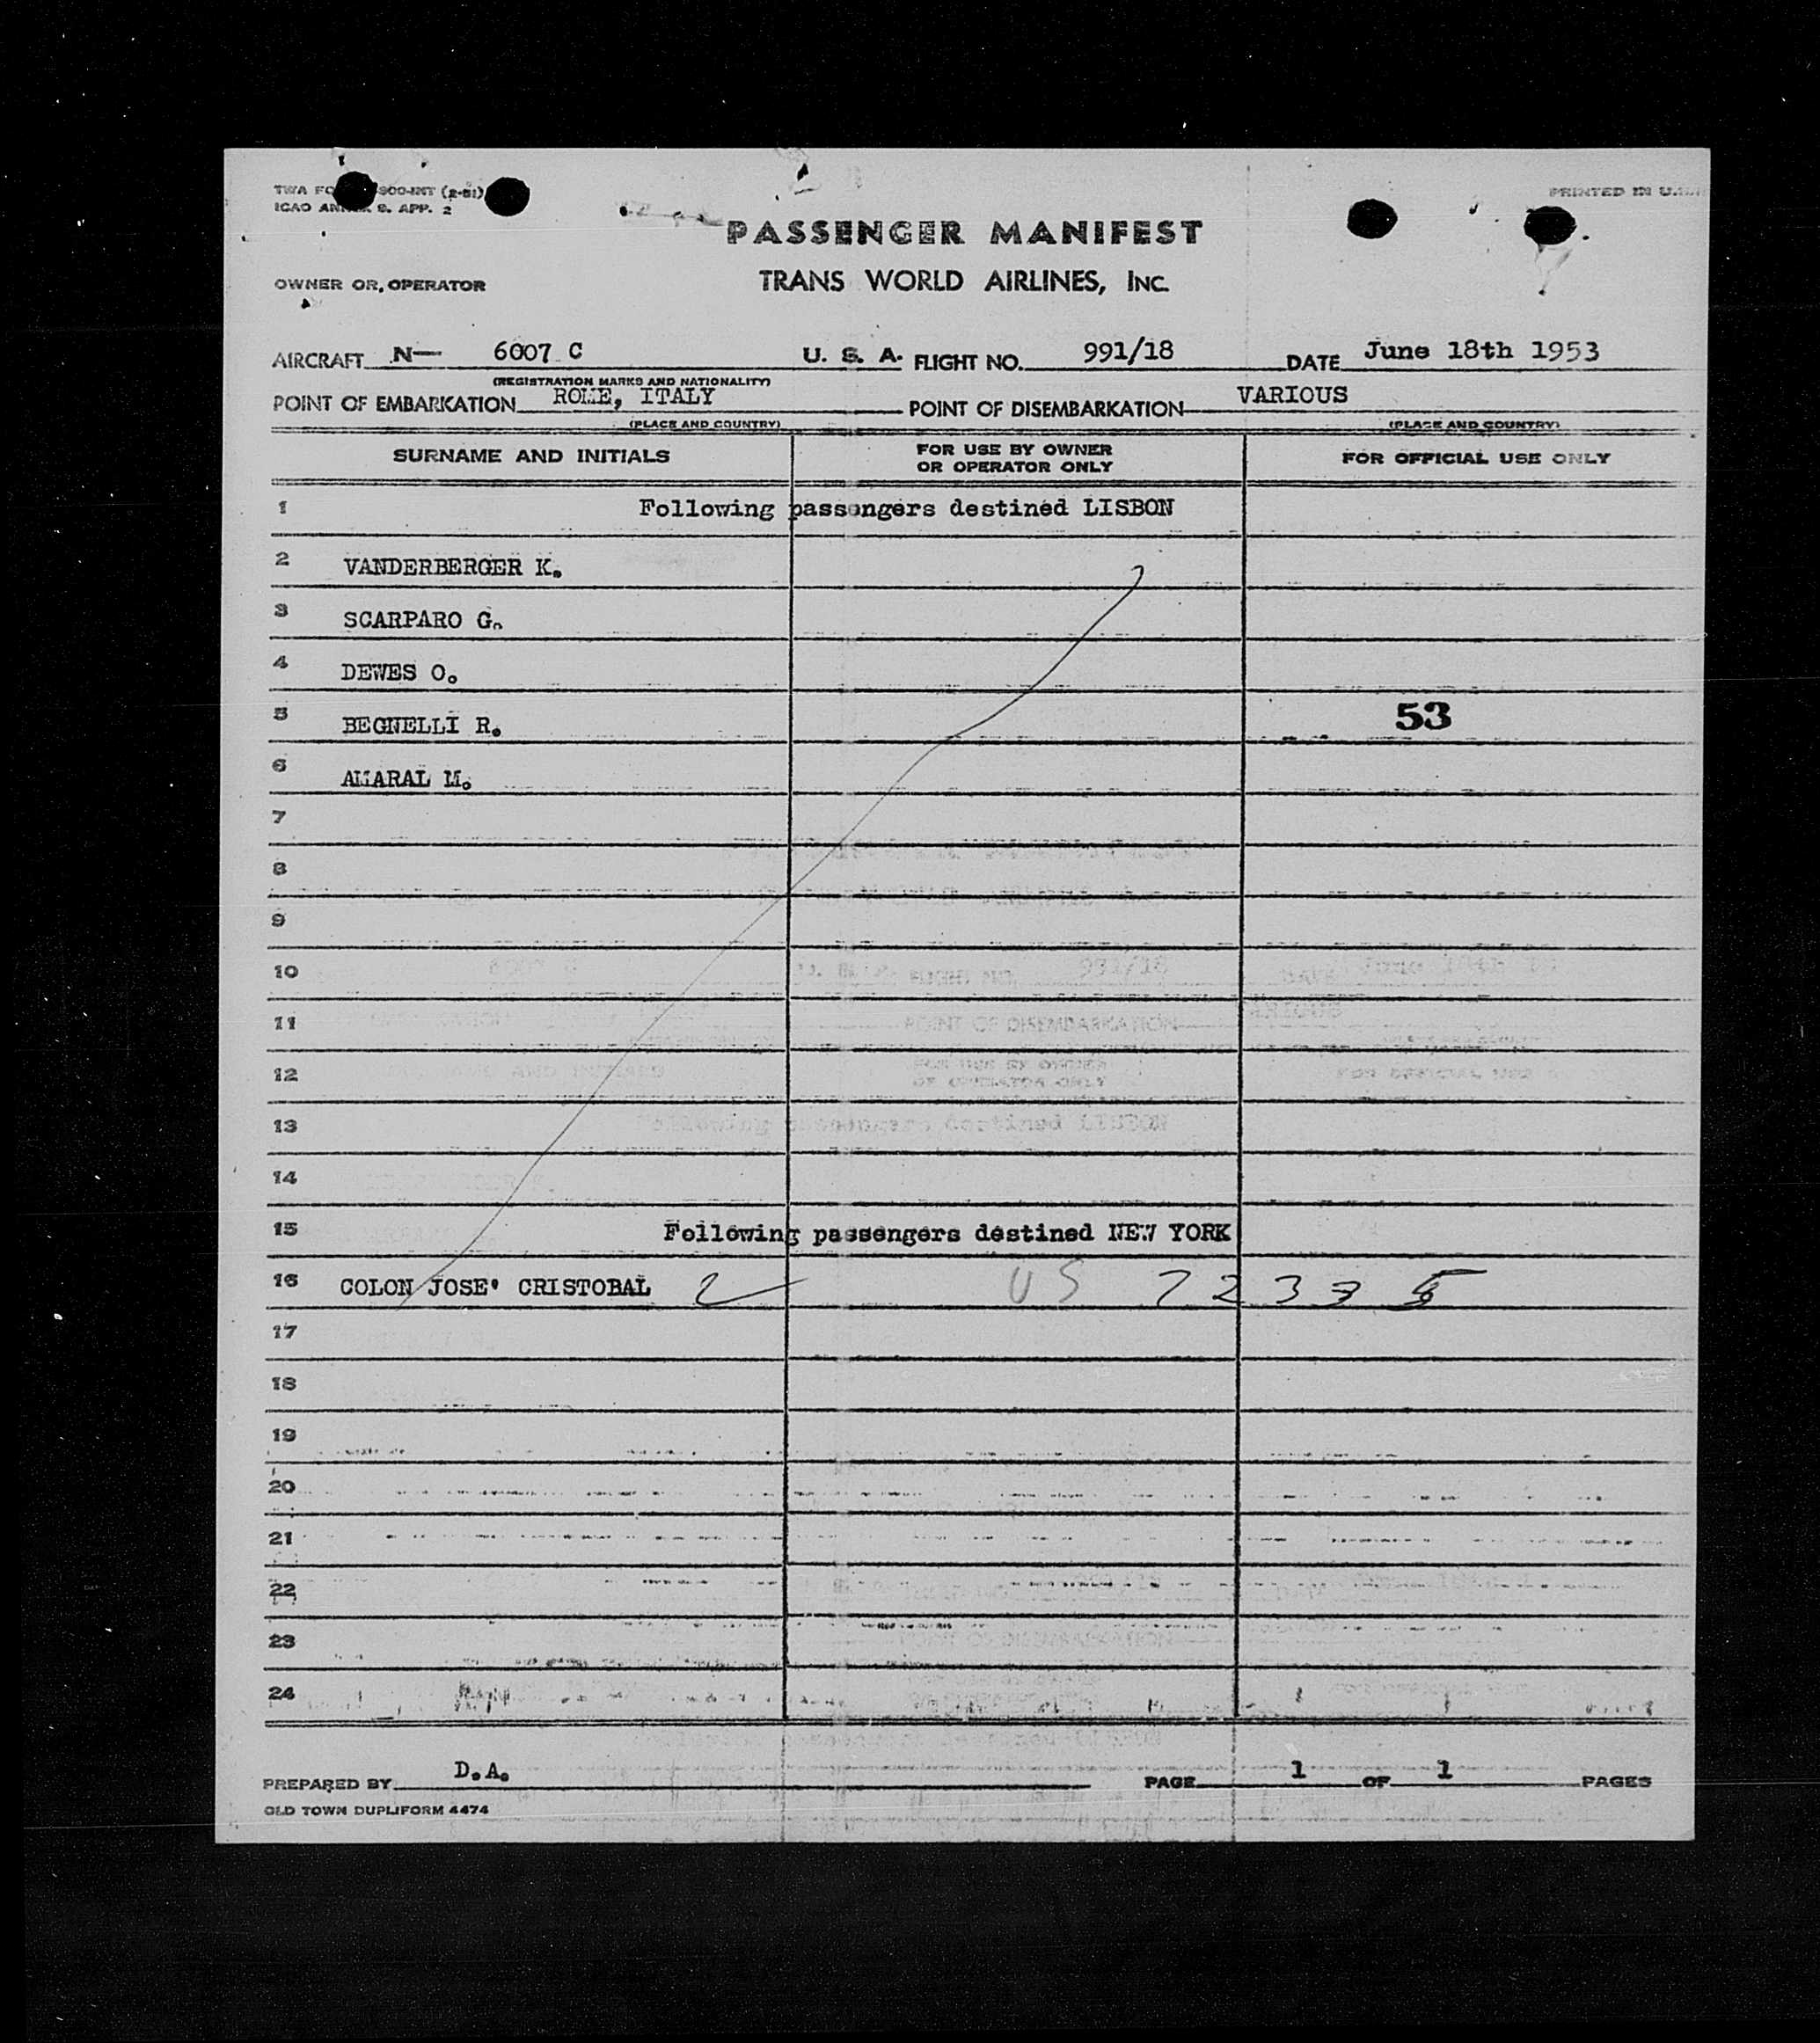 TWA FO 900-INT (2-51)
ICAO ANNEX 9. APP. 2
PRINTED IN U.S.
PASSENGER MANIFEST
TRANS WORLD AIRLINES, INC.
OWNER OR OPERATOR
AIRCRAFT N— 6007 C U. S. A. FLIGHT NO. 991/18 DATE June 18th 1953
(REGISTRATION MARKS AND NATIONALITY)
POINT OF EMBARKATION ROME, ITALY POINT OF DISEMBARKATION VARIOUS
(PLACE AND COUNTRY) (PLACE AND COUNTRY)
SURNAME AND INITIALS FOR USE BY OWNER OR OPERATOR ONLY FOR OFFICIAL USE ONLY
1 Following passengers destined LISBON
2 VANDERBERGER K.
3 SCARPARO G.
4 DEWES O.
5 BEGNELLI R. 53
6 AMARAL M.
7
8
9
10
11
12
13
14
15 Following passengers destined NEW YORK
16 COLON JOSE' CRISTOBAL US 72335
17
18
19
20
21
22
23
24
PREPARED BY D.A. PAGE 1 OF 1 PAGES
OLD TOWN DUPLIFORM 4474